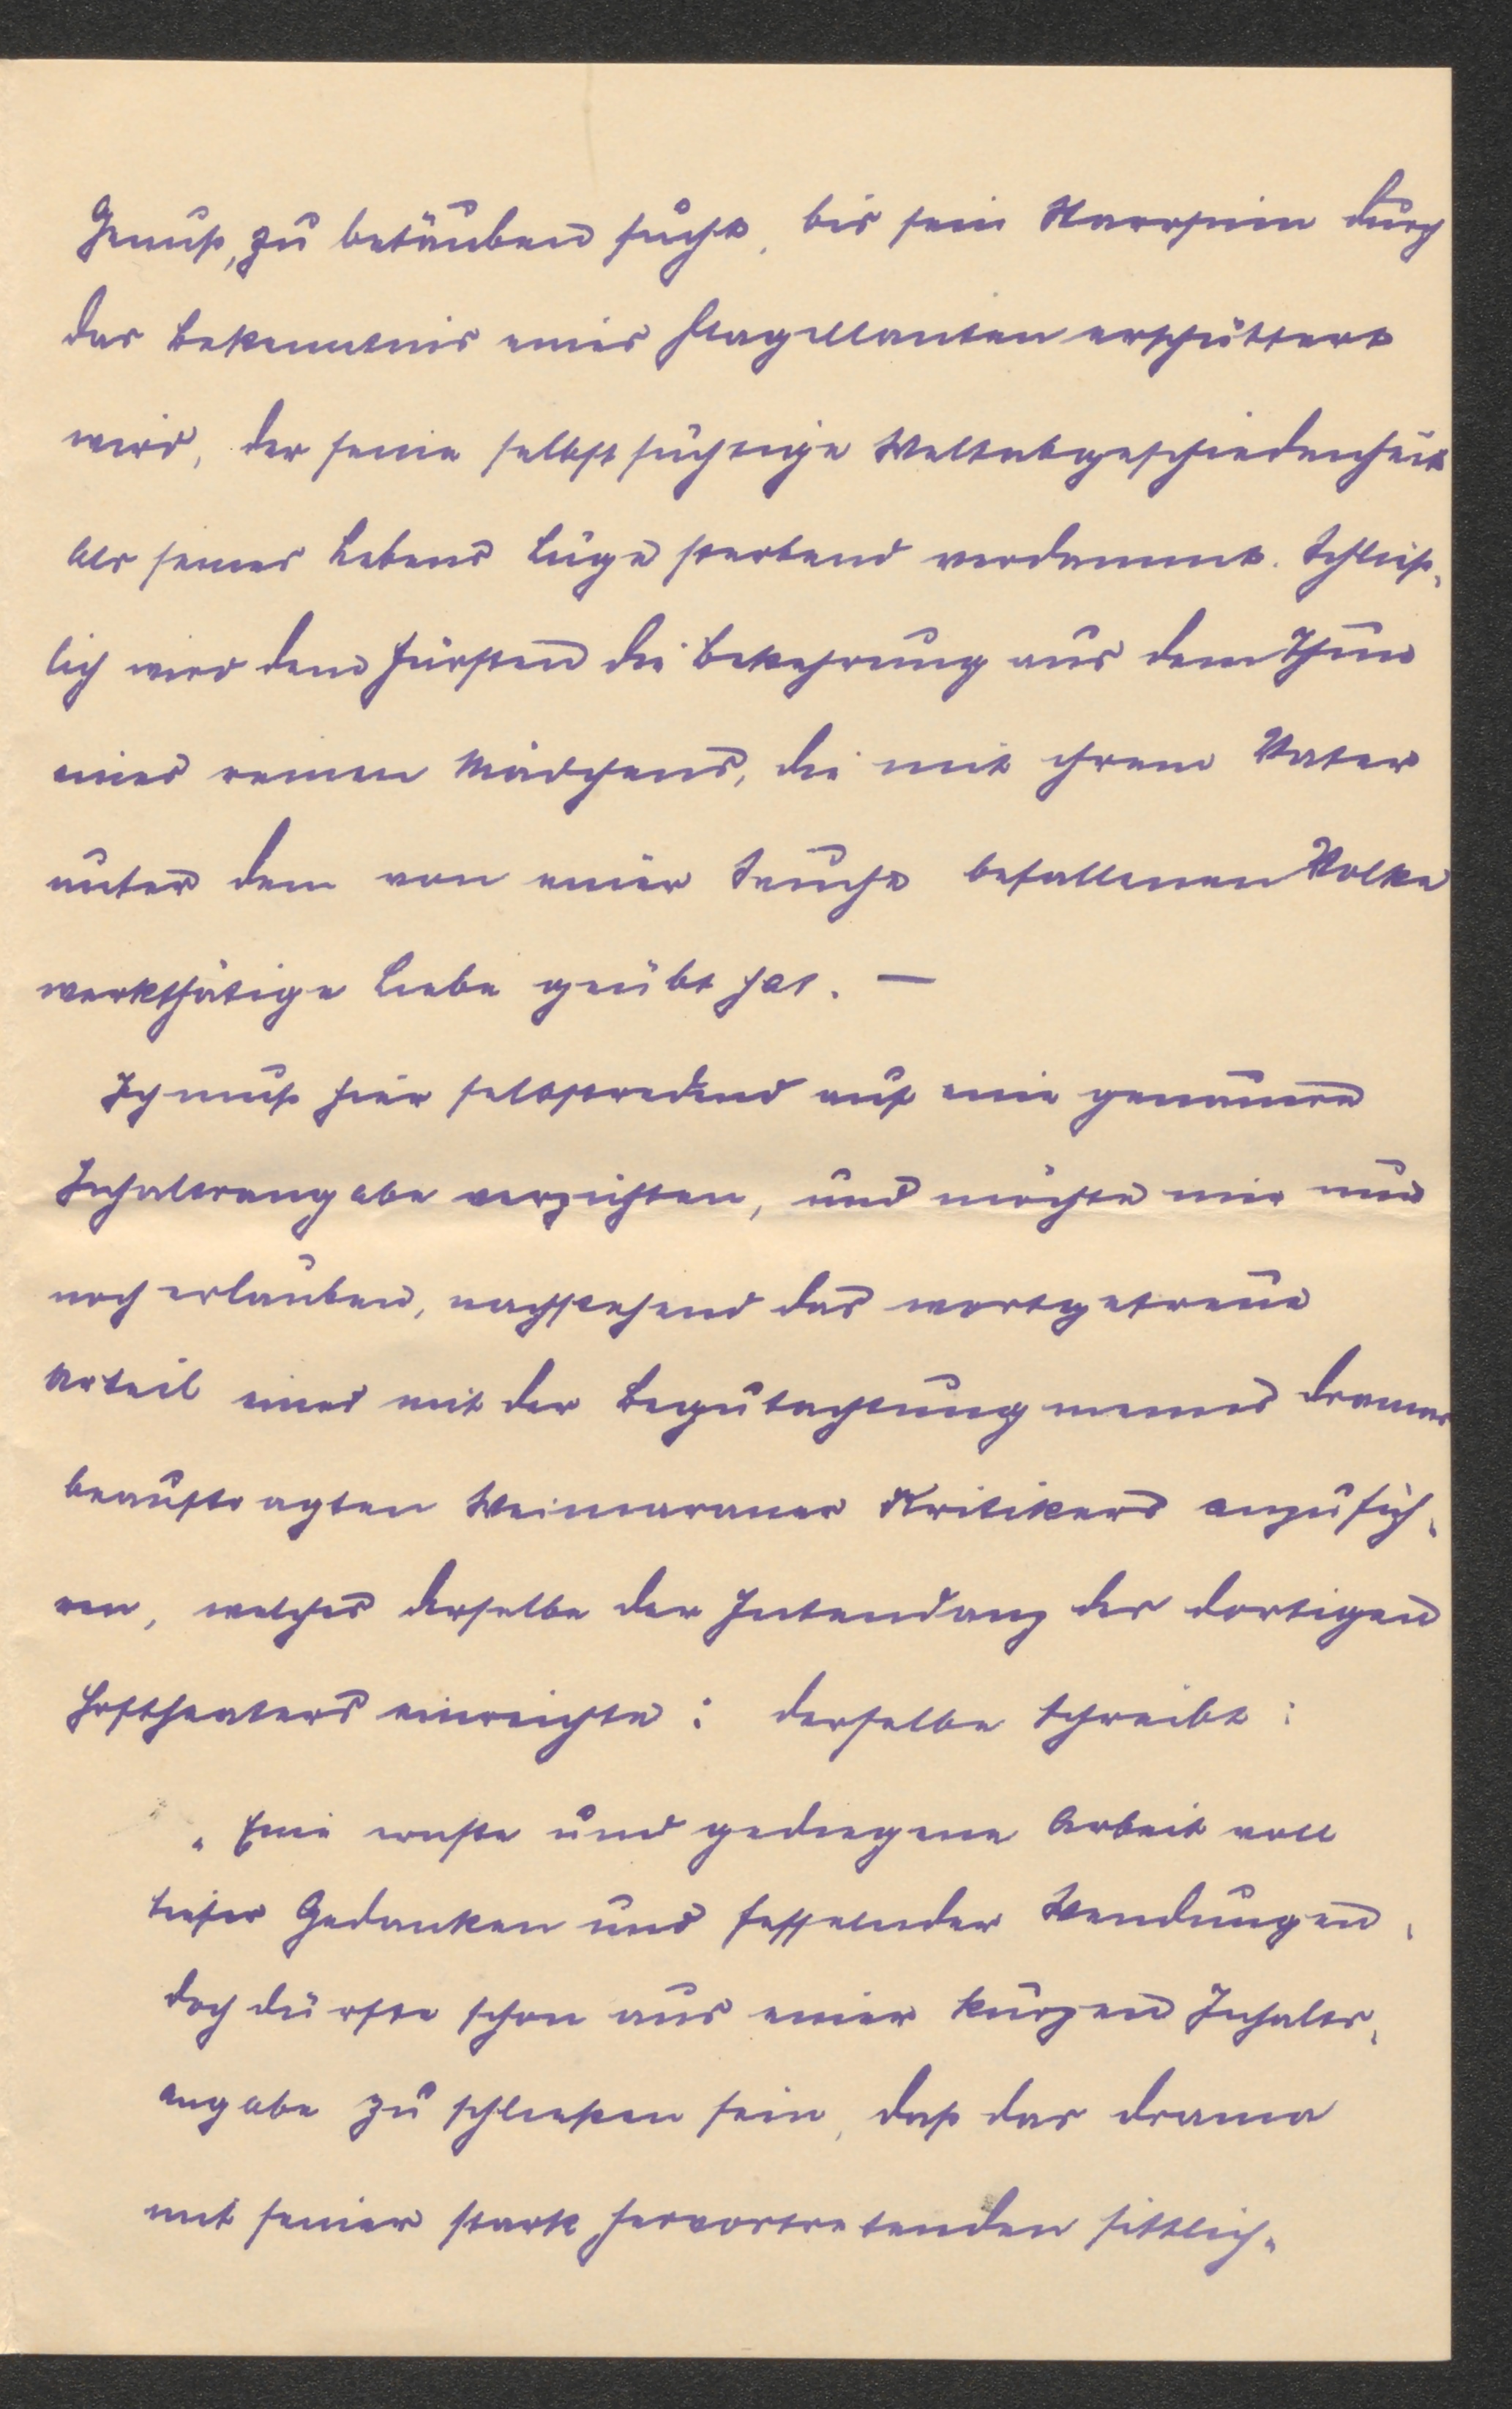 Genuß, zu betäuben sucht, bis sein Starrsinn durch
das Bekenntnis eines Flagellanten erschüttert
wird, der seine selbstsüchtige Weltabgeschiedenheit
als seines Lebens Lüge sterbend verdammt. Schließ-
lich wird dem Fürsten die Bekehrung aus dem Thun
eines reinen Mädchens, die mit ihrem Vater
unter dem von einer Seuche befallenen Volke
werkthätige Liebe geübt hat. —
Ich muß hier selbstredend auf eine genauere
Inhaltsangabe verzichten, und möchte mir nur
noch erlauben, nachstehend das wortgetreue
Urteil eines mit der Begutachtung meines Dramas
beauftragten Weimaraner Kritikers anzufüh-
ren, welches derselbe der Intendanz des dortigen
Hoftheaters einreichte: derselbe schreibt:
„Eine ernste und gediegene Arbeit voll
tiefer Gedanken und fesselnder Wendungen,
doch dürfte schon aus einer kurzen Inhalts-
angabe zu schließen sein, daß das Drama
mit seiner stark hervortretenden sittlich-